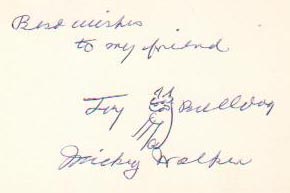 Best wishes
to my friend
Toy Bulldog
Mickey Walker